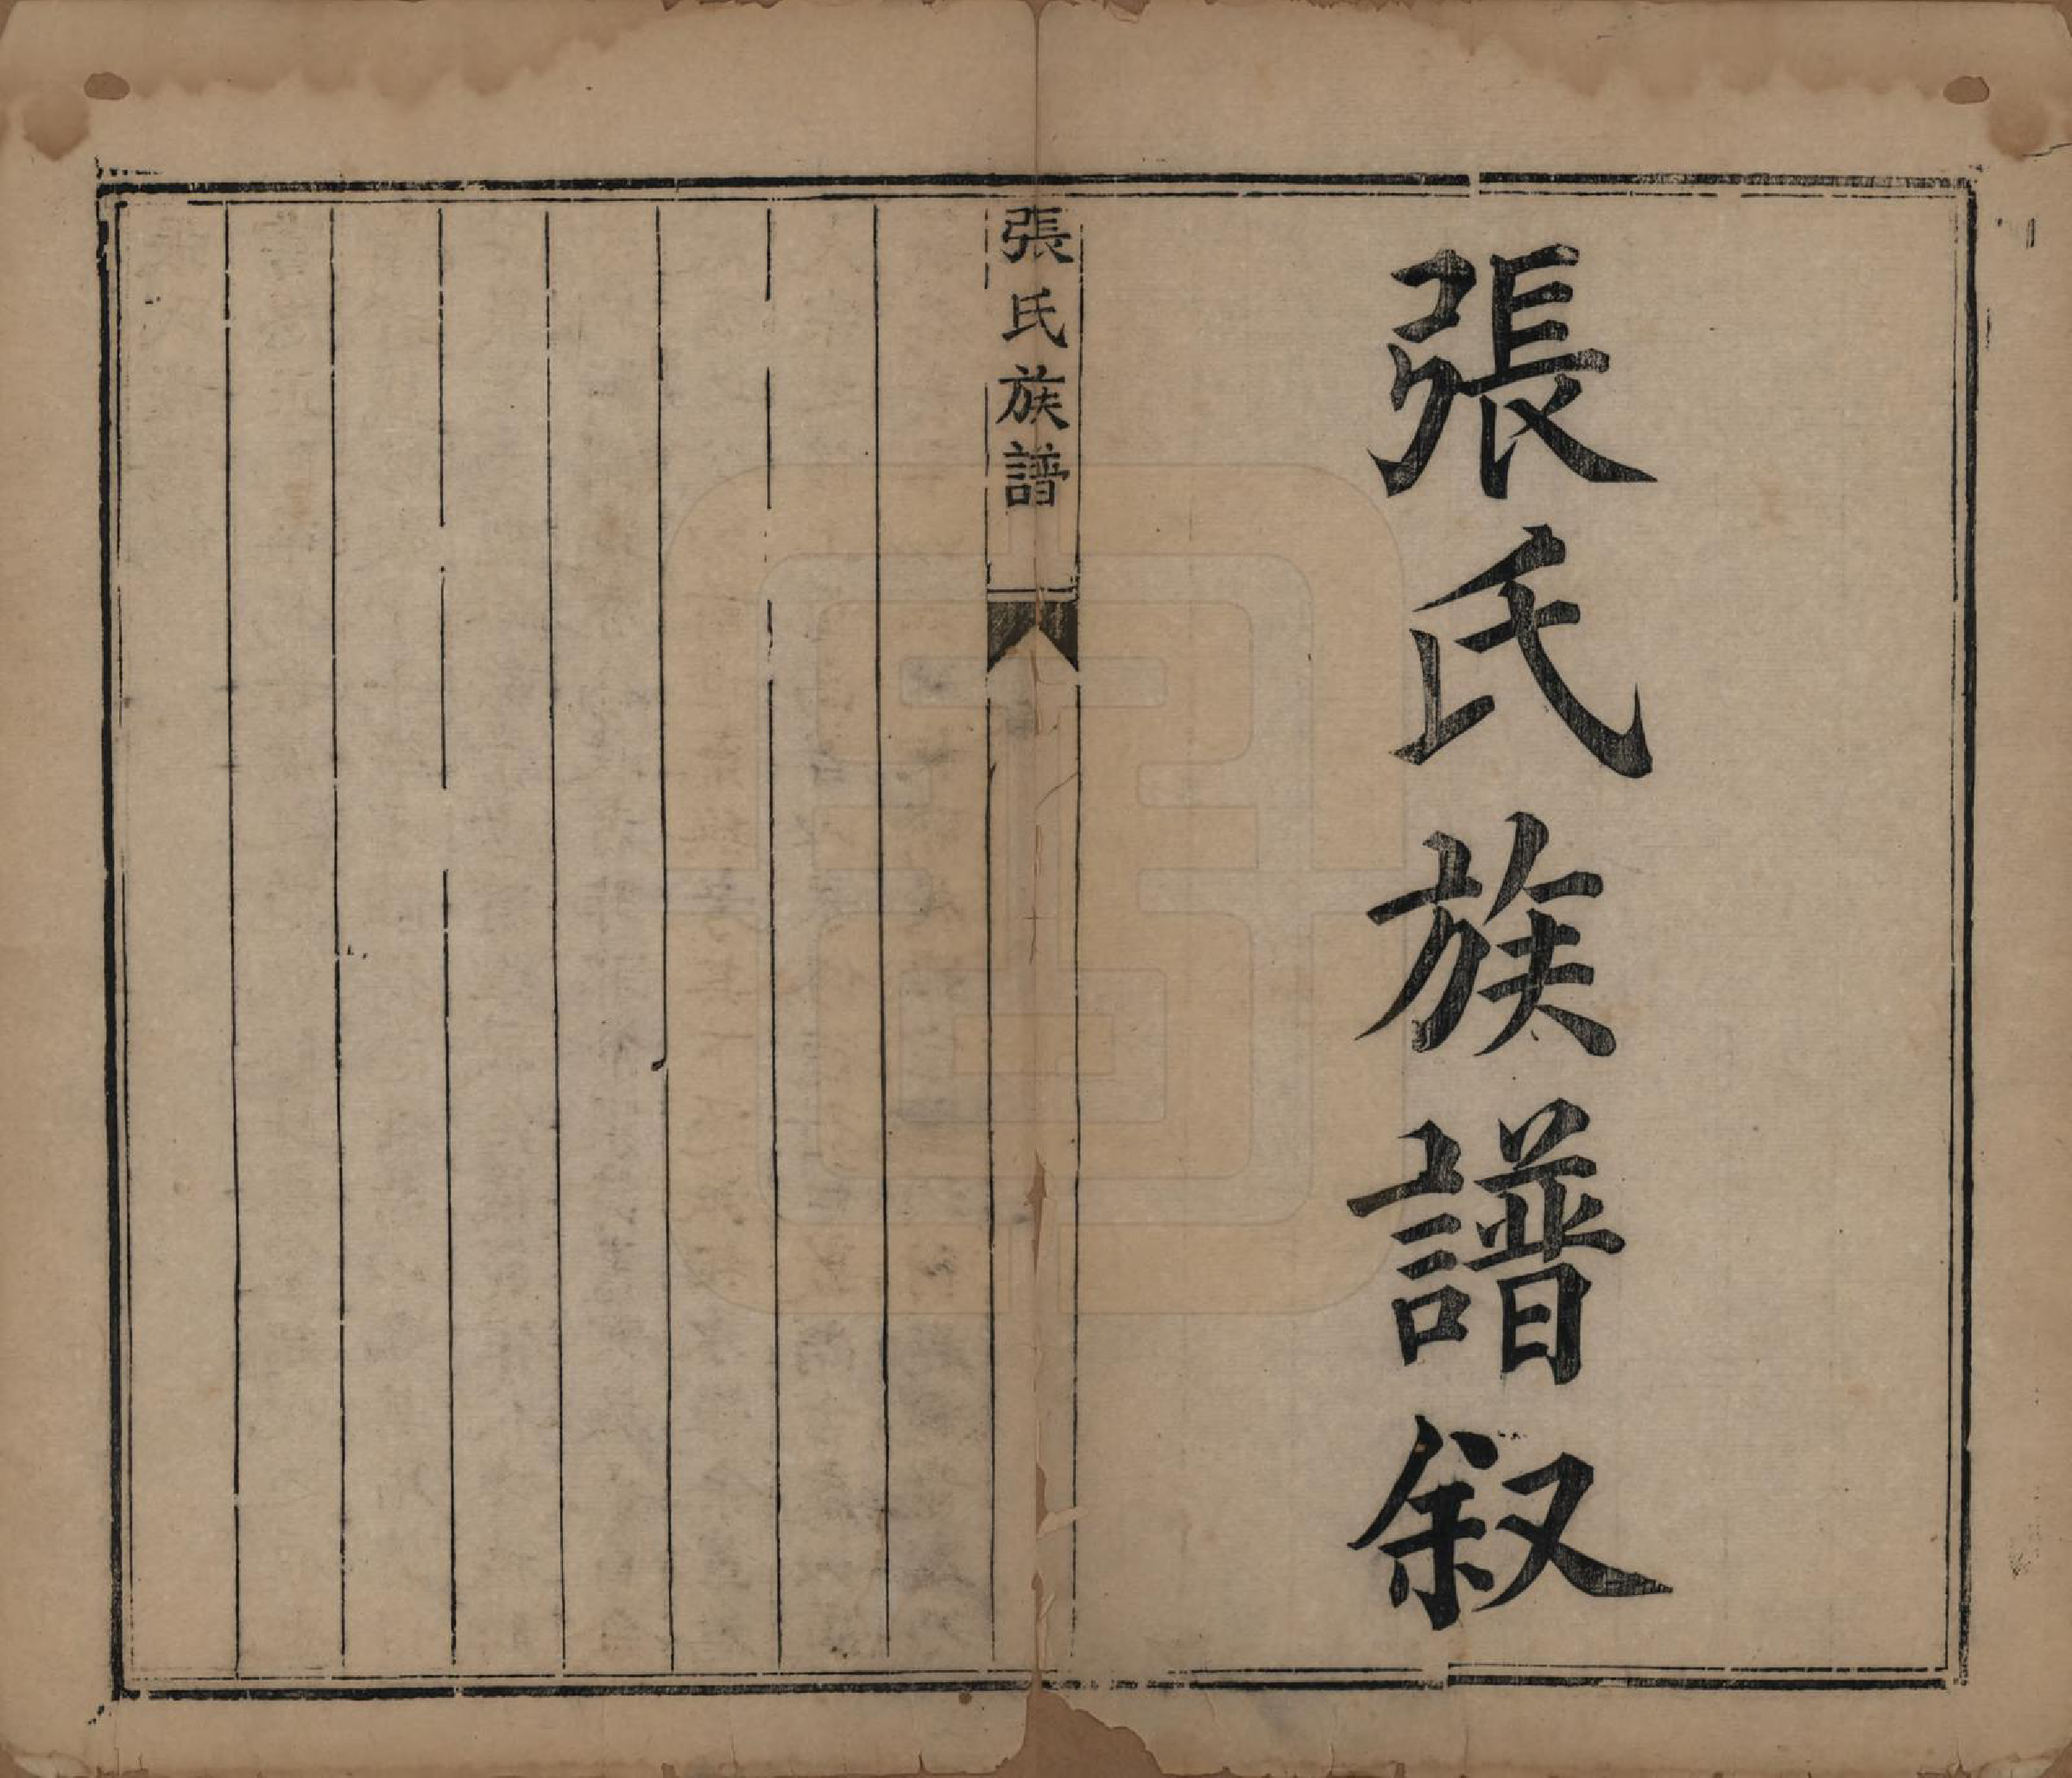 張氏族譜叙
張氏族譜